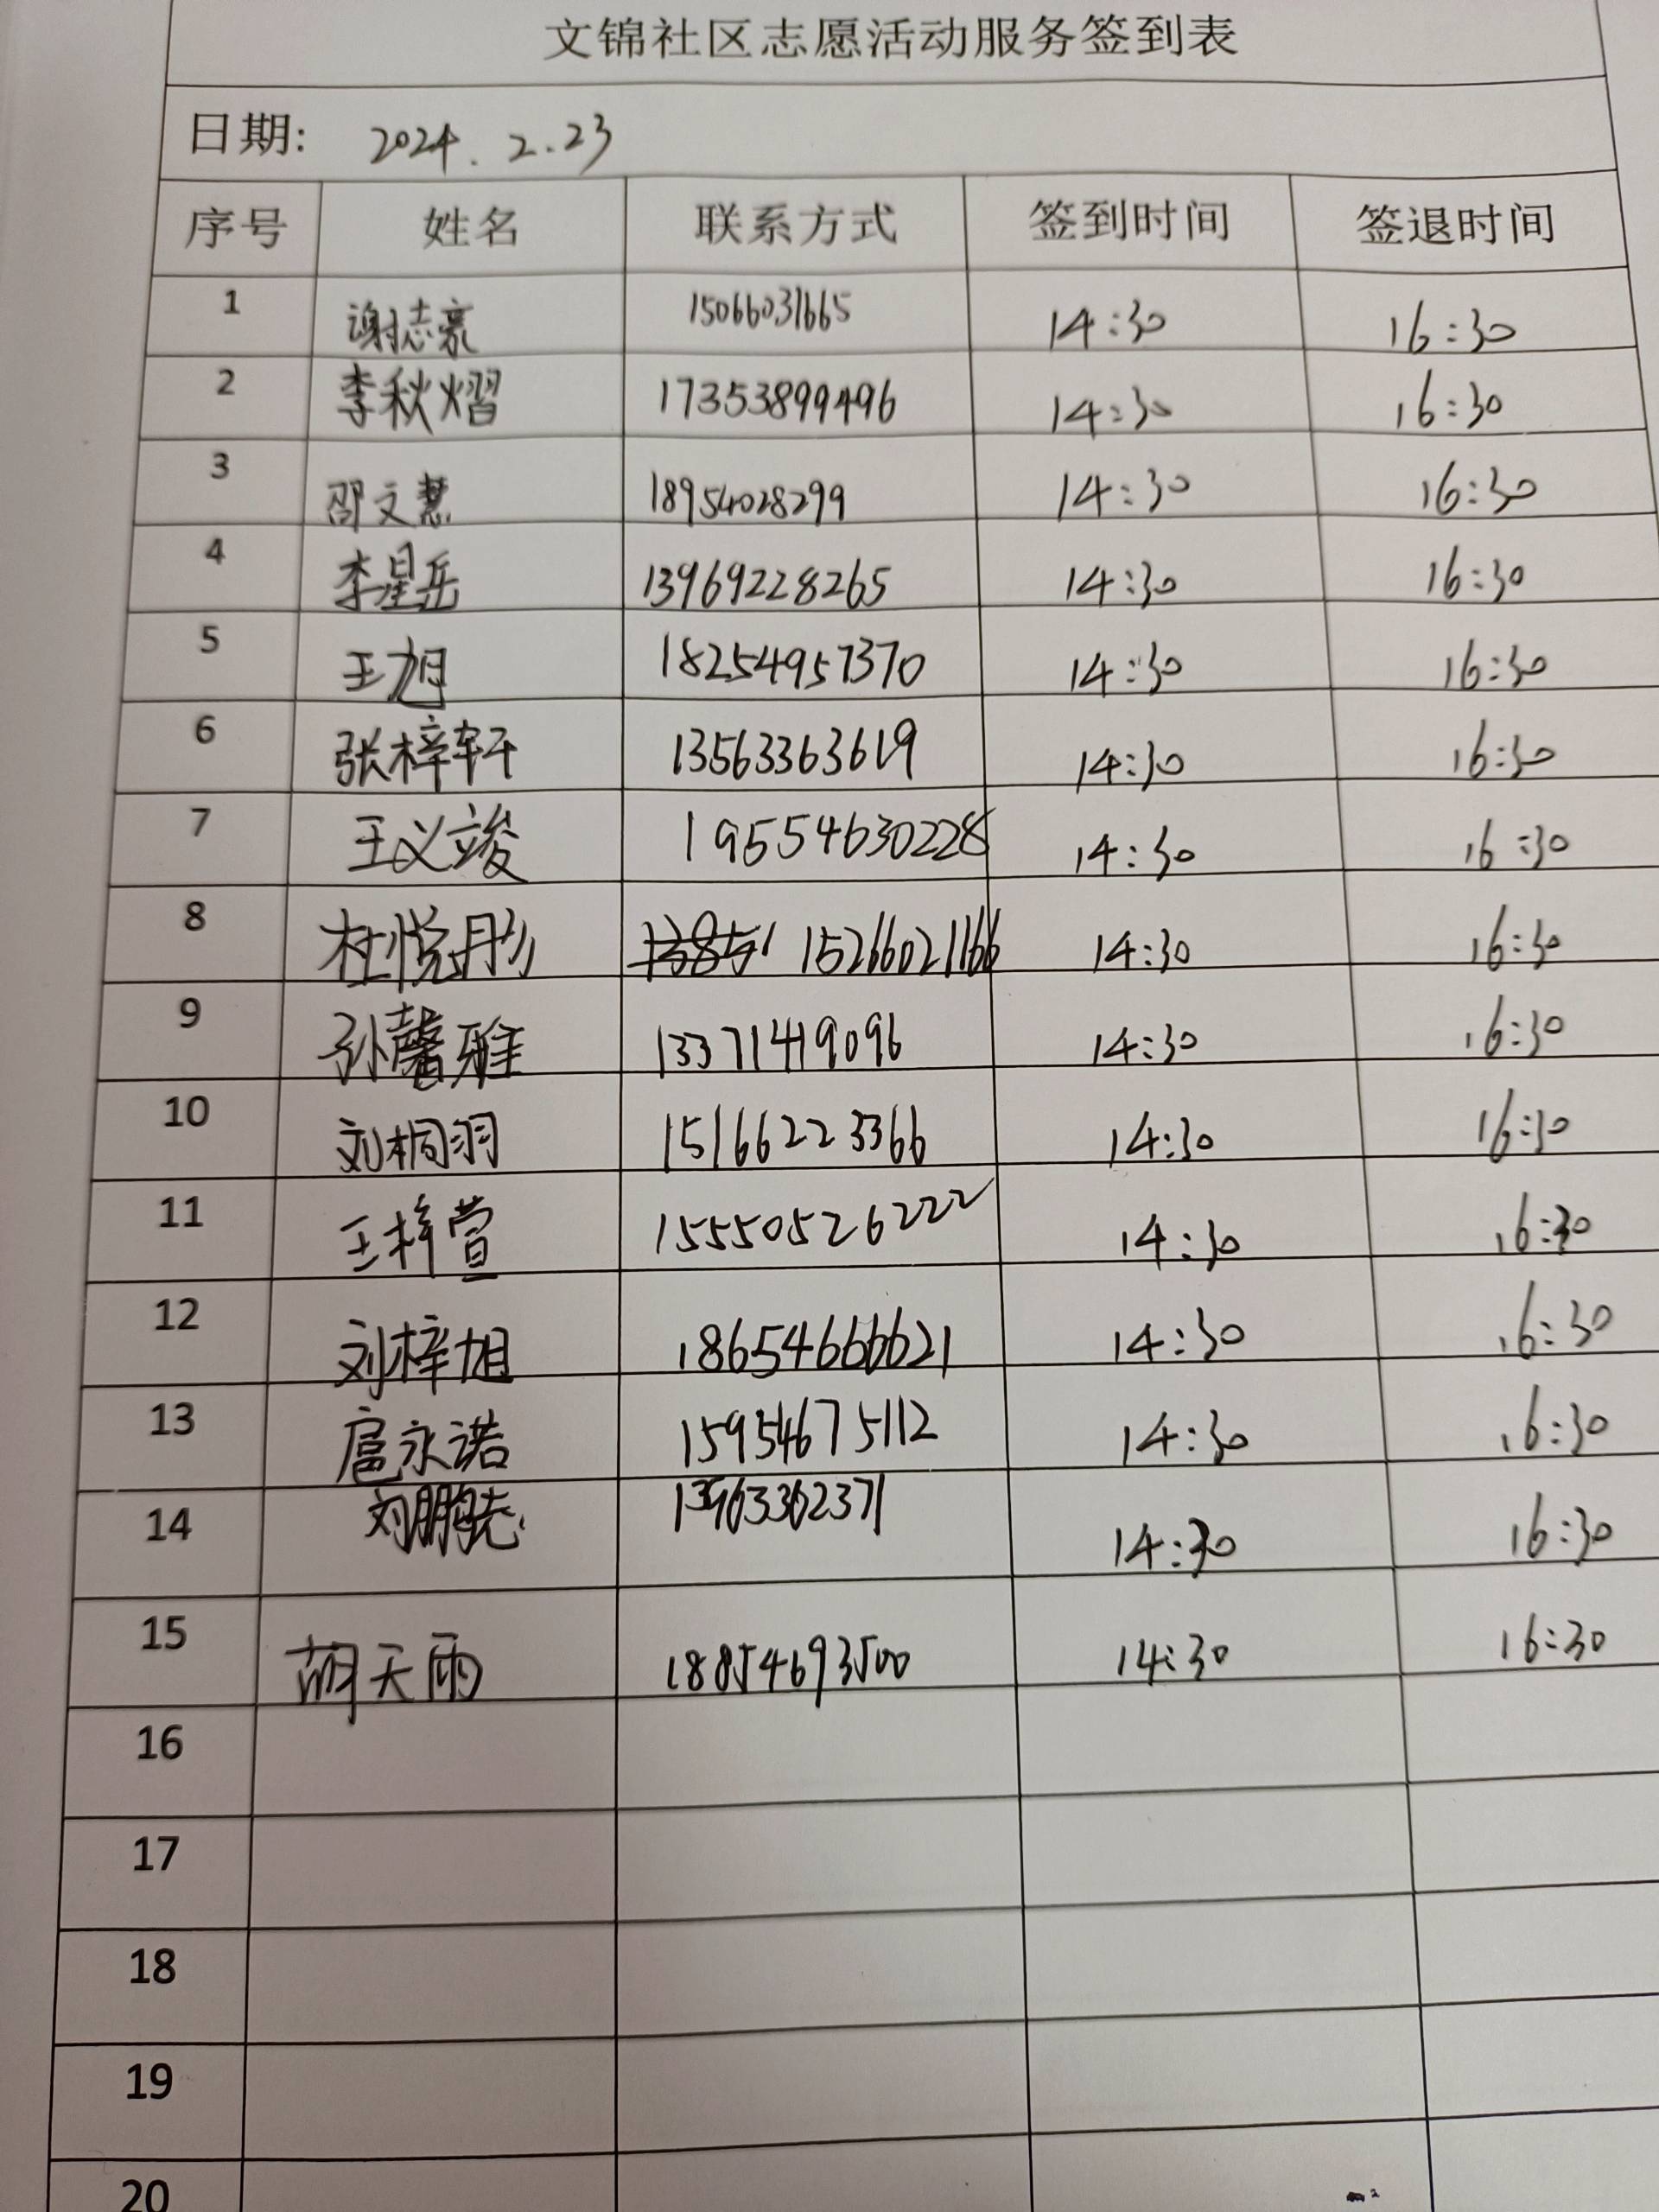 文锦社区志愿活动服务签到表
日期: 2024.2.23
序号 姓名 联系方式 签到时间 签退时间
1 谢志豪 15066031665 14:30 16:30
2 李秋熠 17353899496 14:30 16:30
3 邵文慧 18954028299 14:30 16:30
4 李星岳 13969228265 14:30 16:30
5 王旭 18254957370 14:30 16:30
6 张梓轩 13563363619 14:30 16:30
7 王义竣 19554630228 14:30 16:30
8 杜悦彤 15266021166 14:30 16:30
9 孙馨雅 13371419096 14:30 16:30
10 刘桐羽 15166223366 14:30 16:30
11 王梓萱 15550526222 14:30 16:30
12 刘梓旭 18654666621 14:30 16:30
13 扈永诺 15954675112 14:30 16:30
14 刘鹏 13963362371 14:30 16:30
15 胡天雨 18854693500 14:30 16:30
16
17
18
19
20